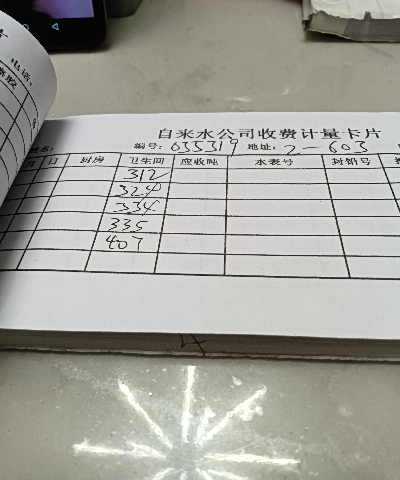 电话:
自来水公司收费计量卡片
姓名: 编号: 635319 地址: 2-603
月 日 厨房 卫生间 应收吨 水表号 封铅号
312
324
334
335
407